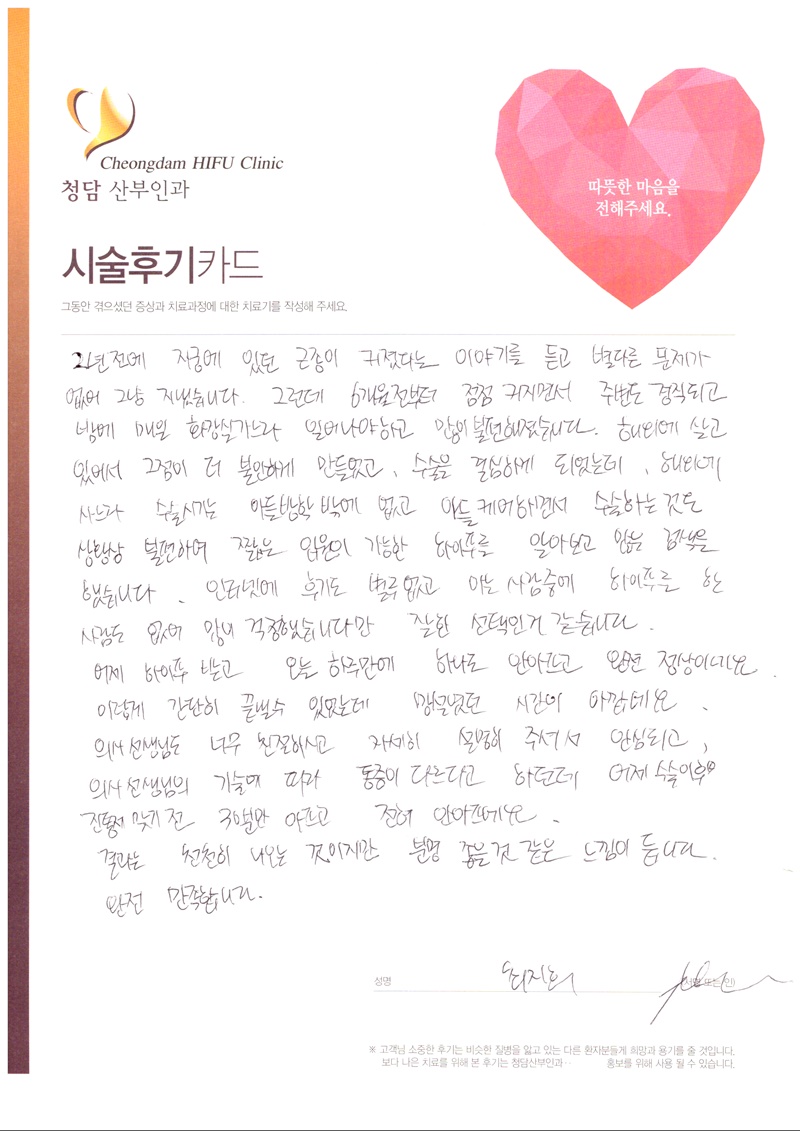 Cheongdam HIFU Clinic
청담 산부인과
따뜻한 마음을
전해주세요.
시술후기카드
그동안 겪으셨던 증상과 치료과정에 대한 치료기를 작성해 주세요.
2년전에 자궁에 있던 근종이 커졌다는 이야기를 듣고 별다른 문제가
없어 그냥 지냈습니다. 그런데 6개월전부터 점점 커지면서 주변도 경직되고
밤에 매일 화장실가느라 일어나야하고 많이 불편해졌습니다. 해외에 살고
있어서 그점이 더 불안하게 만들었고, 수술을 결심하게 되었는데, 해외에
사느라 수술시기는 아들방학 밖에 없고 아들 케어하면서 수술하는것은
상황상 불편하여 짧은 입원이 가능한 하이푸를 알아보고 많은 검색을
했습니다. 인터넷에 후기도 별루 없고 아는 사람중에 하이푸를 한
사람도 없어 많이 걱정했습니다만 잘한 선택인거 같습니다.
어제 하이푸 받고 오늘 하루만에 하나도 안아프고 완전 정상이네요.
이렇게 간단히 끝낼수 있었는데 망설였던 시간이 아깝네요.
의사선생님도 너무 친절하시고 자세히 설명히 주셔서 안심되고,
의사선생님의 기술에 따라 통증이 다르다고 하던데 어제 수술이후
진통제 맞기 전 30분만 아프고 전혀 안아프네요.
결과는 천천히 나오는 것이지만 분명 좋을것 같은 느낌이 듭니다.
완전 만족합니다.
성명 최지희 (서명 또는 인)
※ 고객님 소중한 후기는 비슷한 질병을 앓고 있는 다른 환자분들게 희망과 용기를 줄 것입니다.
보다 나은 치료를 위해 본 후기는 청담산부인과·· 홍보를 위해 사용 될 수 있습니다.